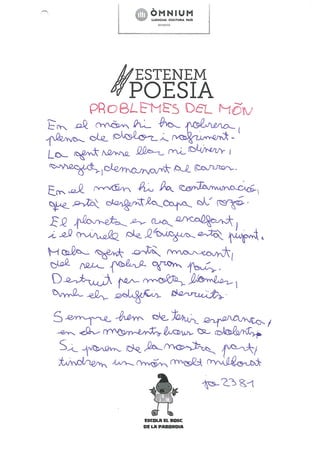 ÒMNIUM
LLENGUA CULTURA PAÍS
ESTENEM
POESIA
PROBLEMES DEL MÓN
En el món hi ha pobresa,
plena de dolor i sofriment.
La gent sense llar ni diners,
arreguts, demanant al carrer.
En el món hi ha contaminació,
que està desfent la capa d'ozó.
El planeta es va escalfant,
i el nivell de l'aigua està pujant.
Molta gent està marxant,
del seu pobre gran país.
Destruit per moltes bombes,
amb els edificis derruits.
Sempre hem de tenir esperança,
en els moments bons o dolents.
Si posem de la nostra part,
tindrem un món molt millorat
ja2381
ESCOLA EL ROSC
DE LA PARONDIA